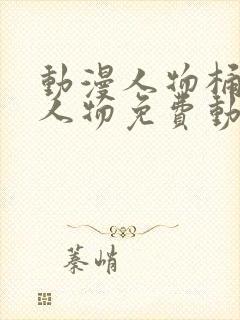 動漫人物桶
人物免費動
蓁峭